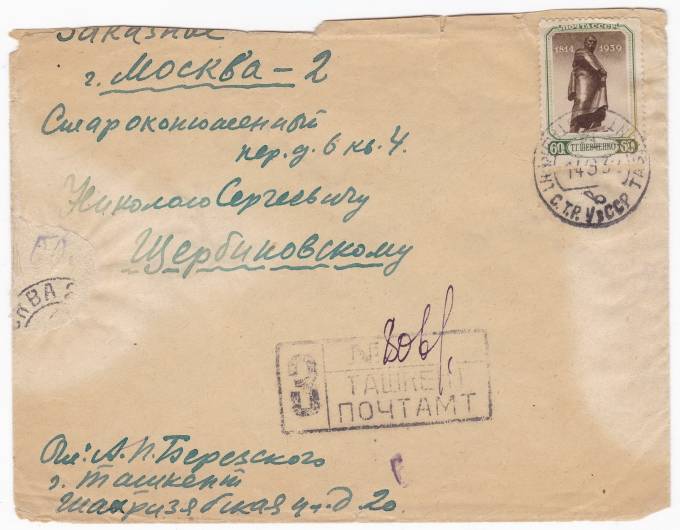 Заказное
г. Москва - 2
Староконюшенный
пер. д. 6 кв. 4.
Николаю Сергеевичу
Щербиновскому
ПОЧТА СССР
1814 1939
60 Т.Г. ШЕВЧЕНКО 60
С.Т.Р. УзССР
КВА 2
З
№
ТАШКЕНТ
ПОЧТАМТ
От: А. П. Березского
г. Ташкент
Шахризябская ул. Д 20